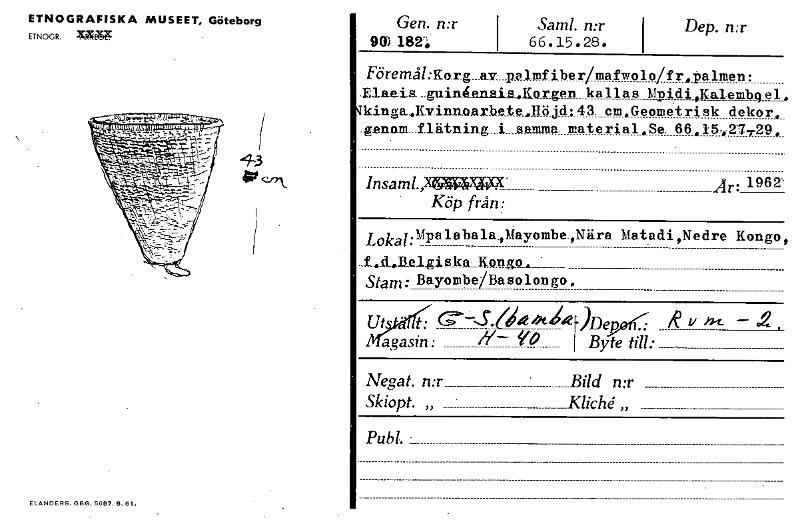 ETNOGRAFISKA MUSEET, Göteborg
ETNOGR.
43
cm
ELANDERS. GBG. 5687. 8. 61.
Gen. n:r Saml. n:r Dep. n:r
90 182. 66.15.28.
Föremål: Korg av palmfiber/mafwolo/fr.palmen:
Elaeis guinéensis.Korgen kallas Mpidi,Kalemboel.
Nkinga.Kvinnoarbete.Höjd:43 cm.Geometrisk dekor.
genom flätning i samma material.Se 66.15.27-29.
Insaml. XXXXXXXX År: 1962
Köp från:
Lokal: Mpalabala,Mayombe,Nära Matadi,Nedre Kongo,
f.d.Belgiska Kongo.
Stam: Bayombe/Basolongo.
Utställt: G-S.(bamba-) Depon.: Rvm-2.
Magasin: H-40 Byte till:
Negat. n:r Bild n:r
Skiopt. „ Kliché „
Publ.